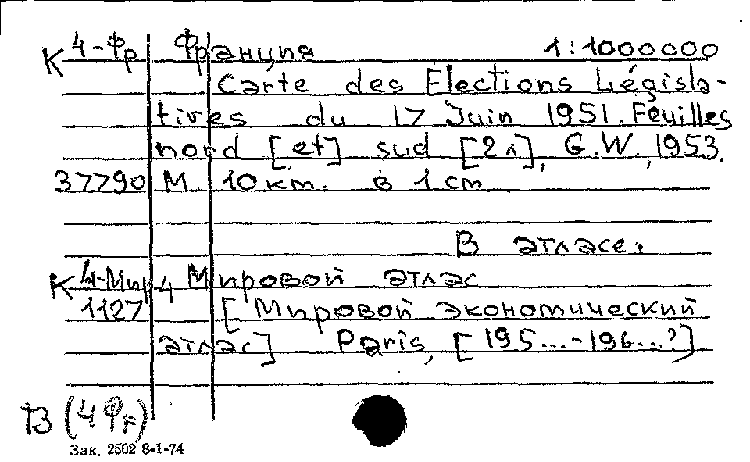 К 4-Фр Франция 1:1000000
Carte des Elections Législa-
tives du 17 Juin 1951. Feuilles
nord [et] sud [2л], G.W, 1953.
37790 М. 10 км. в 1 cm
В атласе:
К 4-Мир 4 Мировой атлас
1127 [Мировой экономический
атлас] Paris, [195...-196...?]
ТЗ (4 Фр)
Зак. 2502 8-1-74